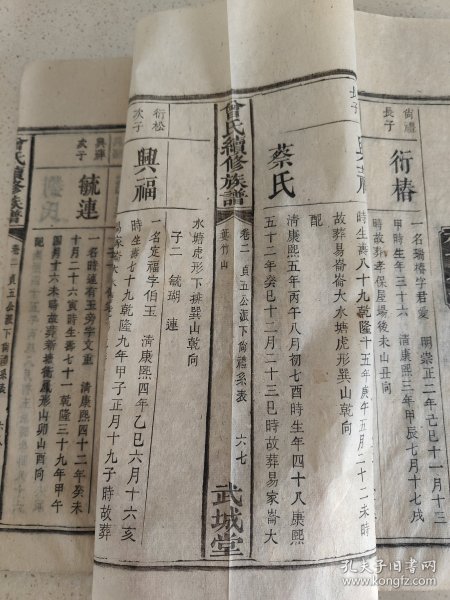 尙禮
長子
衍椿
一名瑞椿字君愛
明崇正二年己巳十一月十三
甲時生年三十六
清康熙三年甲辰七月十七戌
時故葬孝保屋場後未山丑向
長子
時生壽八十九乾隆十五年庚午五月二十二未時
故葬易家崙大水塘虎形巽山乾向
配
蔡氏
清康熙五年丙午八月初七酉時生年四十八康熙
五十二年癸巳十二月二十三巳時故葬易家崙大
曾氏續修族譜
卷二 貞五公派下尙禮系表
六七
葉竹山
武城堂
水塘虎形下排巽山乾向
子二 毓瑚 連
衍松
次子
興福
一名定福字伯玉
清康熙四年乙巳六月十六亥
時生壽七十九乾隆九年甲子正月十九子時故葬
興輝
次子
毓連
一名時連有玉旁字文重
清康熙四十二年癸未
十月二十六寅時生壽七十一乾隆三十九年甲午
四月十六未時故葬新塘衝鳳形山卯山酉向
配
曾氏續修族譜
卷二 貞五公派下尙禮系表
六八
孔夫子旧书网
book.kongfz.com